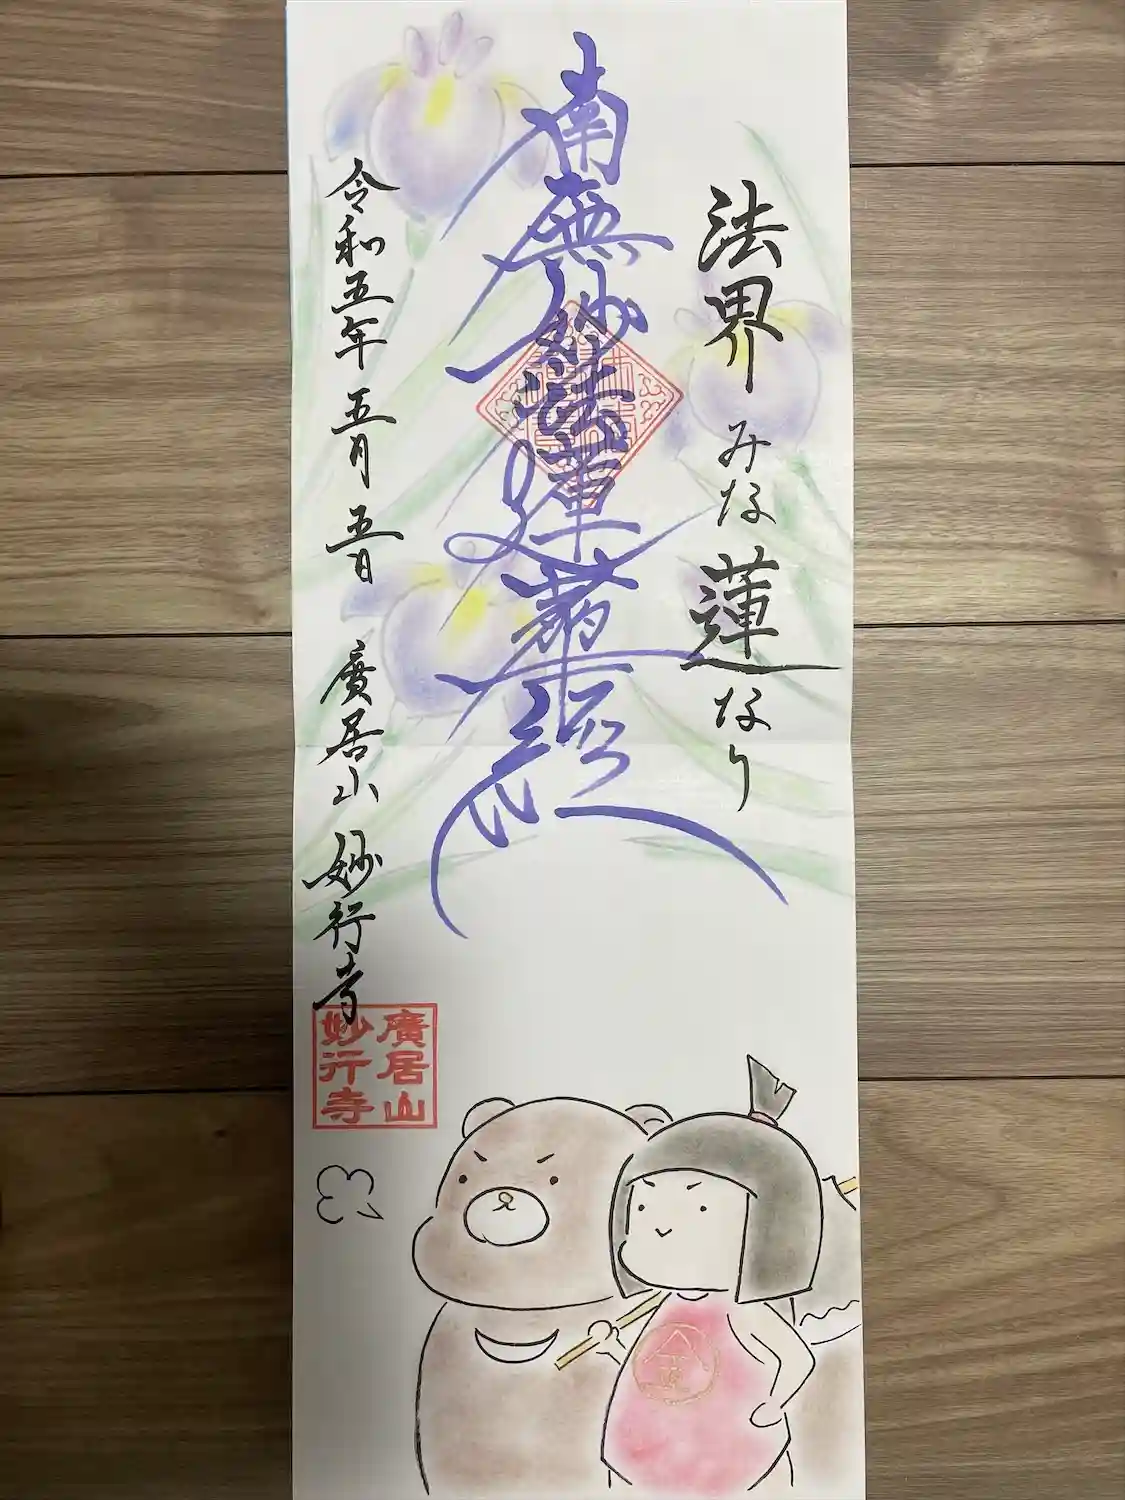 法界みな蓮なり
南無妙法蓮華経
令和五年 五月 五日 廣居山 妙行寺
廣居山
妙行寺
金